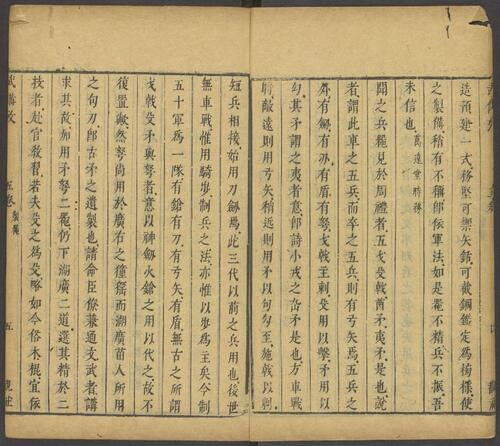 造預建一式務堅可禦矢銳可截鋼鑑定爲榜樣使
之製備稍有不稱即依軍法如是器不精兵不振吾
未信也
聞之兵器見於周禮者五戈殳戟酋矛夷矛是也說
者謂此車之五兵而步之五兵則有弓矢焉五兵之
外有劍有刀有盾有弩戈戟主刺殳用以擊矛用以
勾其矛謂之夷者意即詩小戎之厹矛是也方車戰
時敵遠則用弓矢稍近則用矛以句句至施戟以刺
短兵相接始用刀劍焉此三代以前之兵用也後世
無車戰惟用騎步制兵之法亦惟以步爲主矣今制
五十軍爲一隊有鎗有刀有弓矢有盾無古之所謂
戈戟殳矛與弩者意以神劍火鎗之用以代之故不
復置歟然弩尚用於廣右之獞猺而湖廣苗人所用
之句刀即古矛之遺製也請命臣僚兼通文武者講
求其故加用矛弩二器仍下湖廣二道選其精於二
技者赴官敎習若夫殳之爲殳略如今俗木棍宜依
五